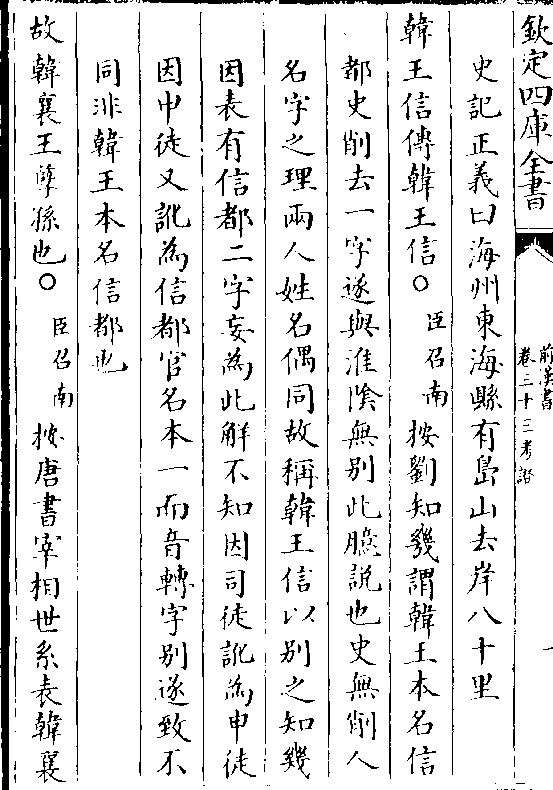 欽定四庫全書
前漢書
卷三十三考證
史記正義曰海州東海縣有島山去岸八十里
韓王信傳韓王信○臣召南按劉知幾謂韓王本名信
都史削去一字遂與淮陰無别此臆説也史無削人
名字之理兩人姓名偶同故稱韓王信以别之知幾
因表有信都二字妄為此解不知因司徒訛為申徒
因申徒又訛為信都官名本一而音轉字别遂致不
同非韓王本名信都也
故韓襄王孽孫也○臣召南按唐書宰相世系表韓襄